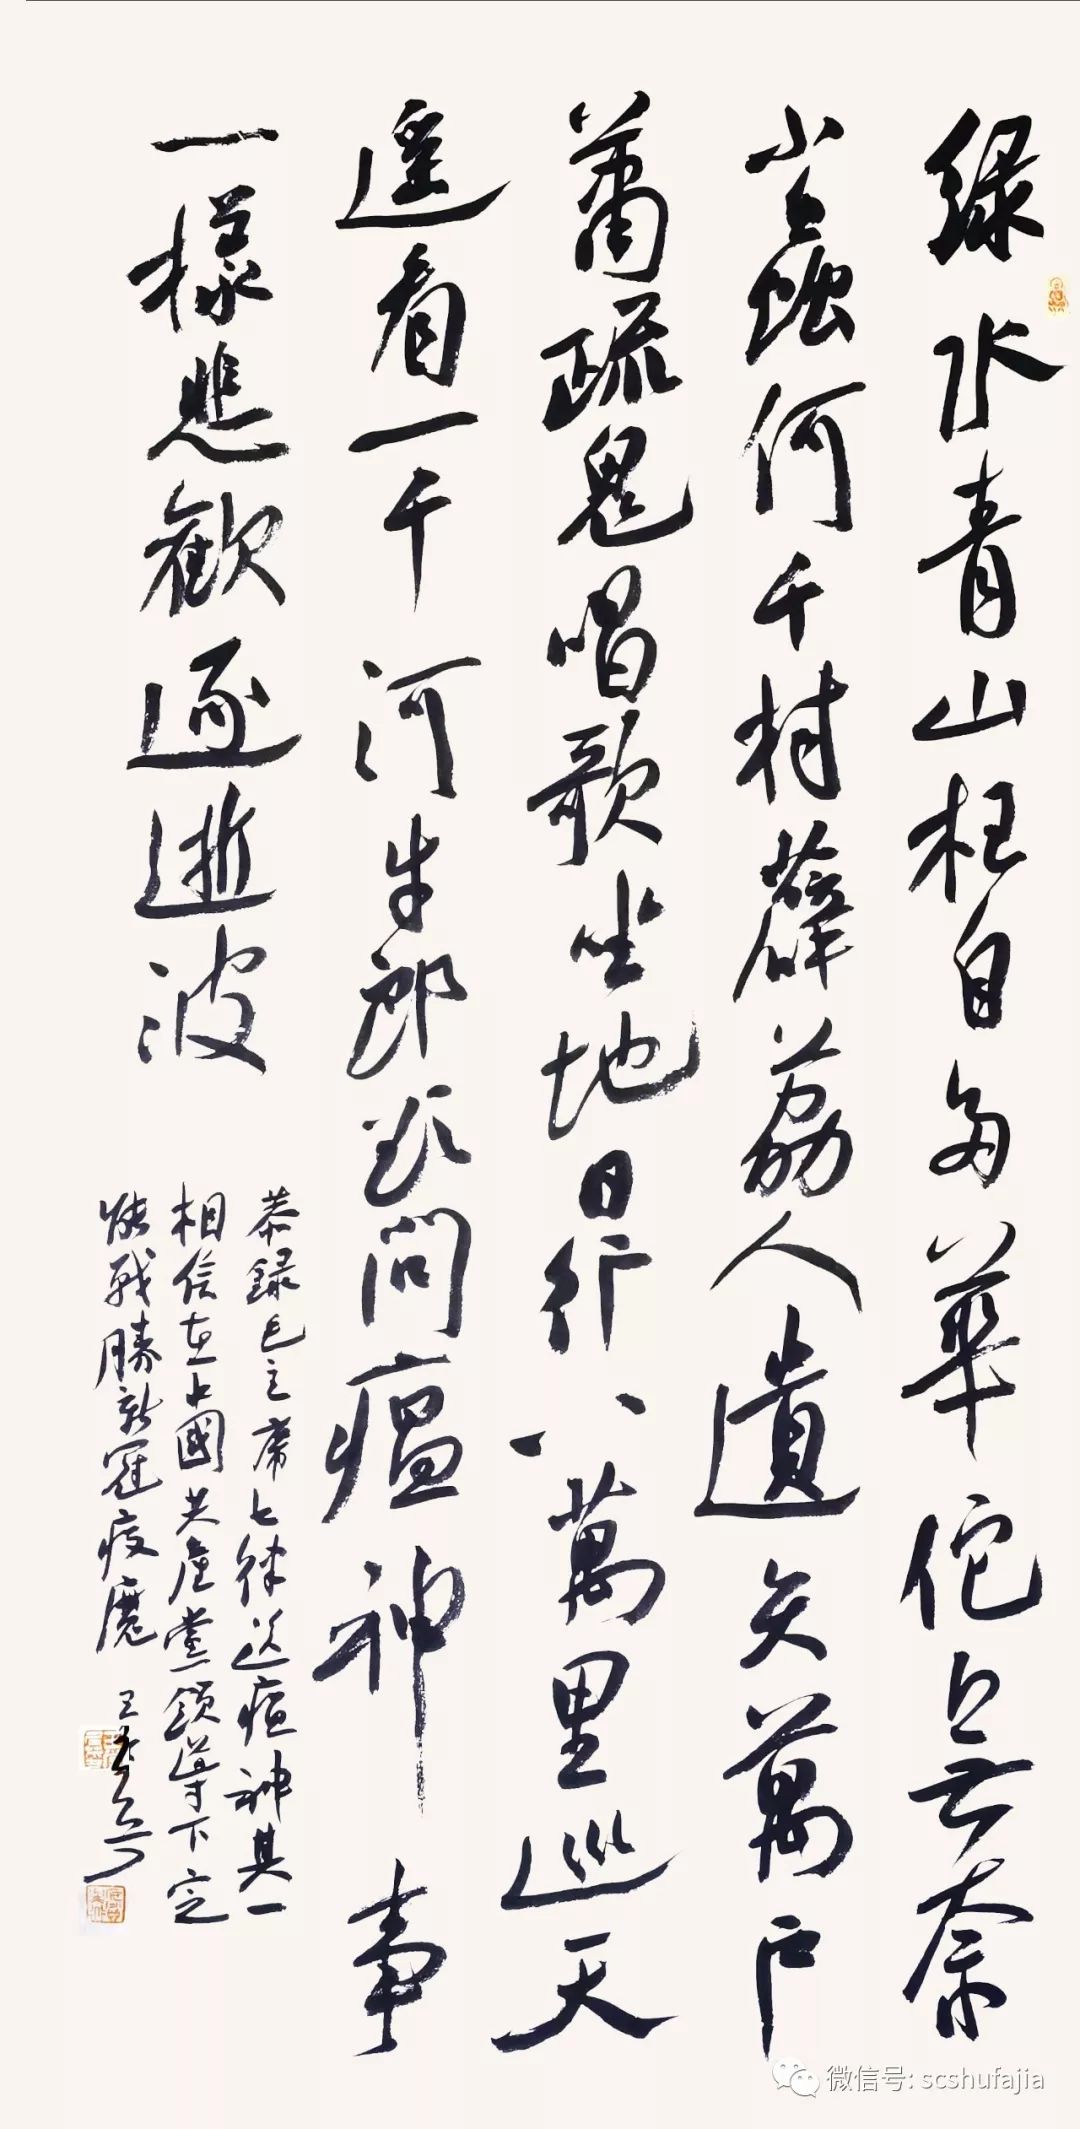 綠水青山枉自多華佗無奈
小蟲何千村薜荔人遺矢萬户
蕭疏鬼唱歌坐地日行八萬里巡天
遥看一千河牛郎欲問瘟神事
一樣悲歡逐逝波
恭錄毛主席七律送瘟神其一
相信在中國共產黨領導下定
能戰勝新冠疫魔
微信号: scshufajia